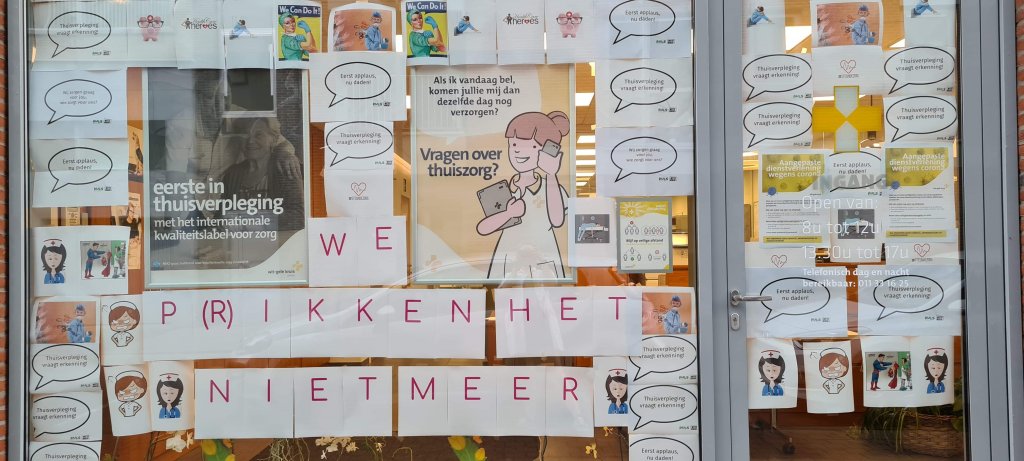 Thuisverpleging
vraagt erkenning!
We Can Do It!
We Can Do It!
Eerst applaus,
nu daden!
Thuisverpleging
vraagt erkenning!
Thuisverpleging
vraagt erkenning!
Wij zorgen graag
voor jou,
wie zorgt voor ons?
Eerst applaus,
nu daden!
Als ik vandaag bel,
komen jullie mij dan
dezelfde dag nog
verzorgen?
Eerst applaus,
nu daden!
Thuisverpleging
vraagt erkenning!
Thuisverpleging
vraagt erkenning!
Eerst applaus,
nu daden!
Thuisverpleging
vraagt erkenning!
Vragen over
thuiszorg?
Wij zorgen graag
voor jou,
wie zorgt voor ons?
eerste in
thuisverpleging
met het internationale
kwaliteitslabel voor zorg
wit-gele kruis
Blijf op veilige afstand
Aangepaste
dienstverlening
wegens corona
Eerst applaus,
nu daden!
Aangepaste
dienstverlening
wegens corona
INGANG
Open van:
8u tot 12u
13.30u tot 17u
Telefonisch dag en nacht
bereikbaar: 011 33 16 25
WE
P(R)IKKEN HET
NIET MEER
Eerst applaus,
nu daden!
Thuisverpleging
vraagt erkenning!
Thuisverpleging
vraagt erkenning!
Thuisverpleging
vraagt erkenning!
Thuisverpleging
vraagt erkenning!
Thuisverpleging
vraagt erkenning!
Thuisverpleging
Eerst applaus,
nu daden!